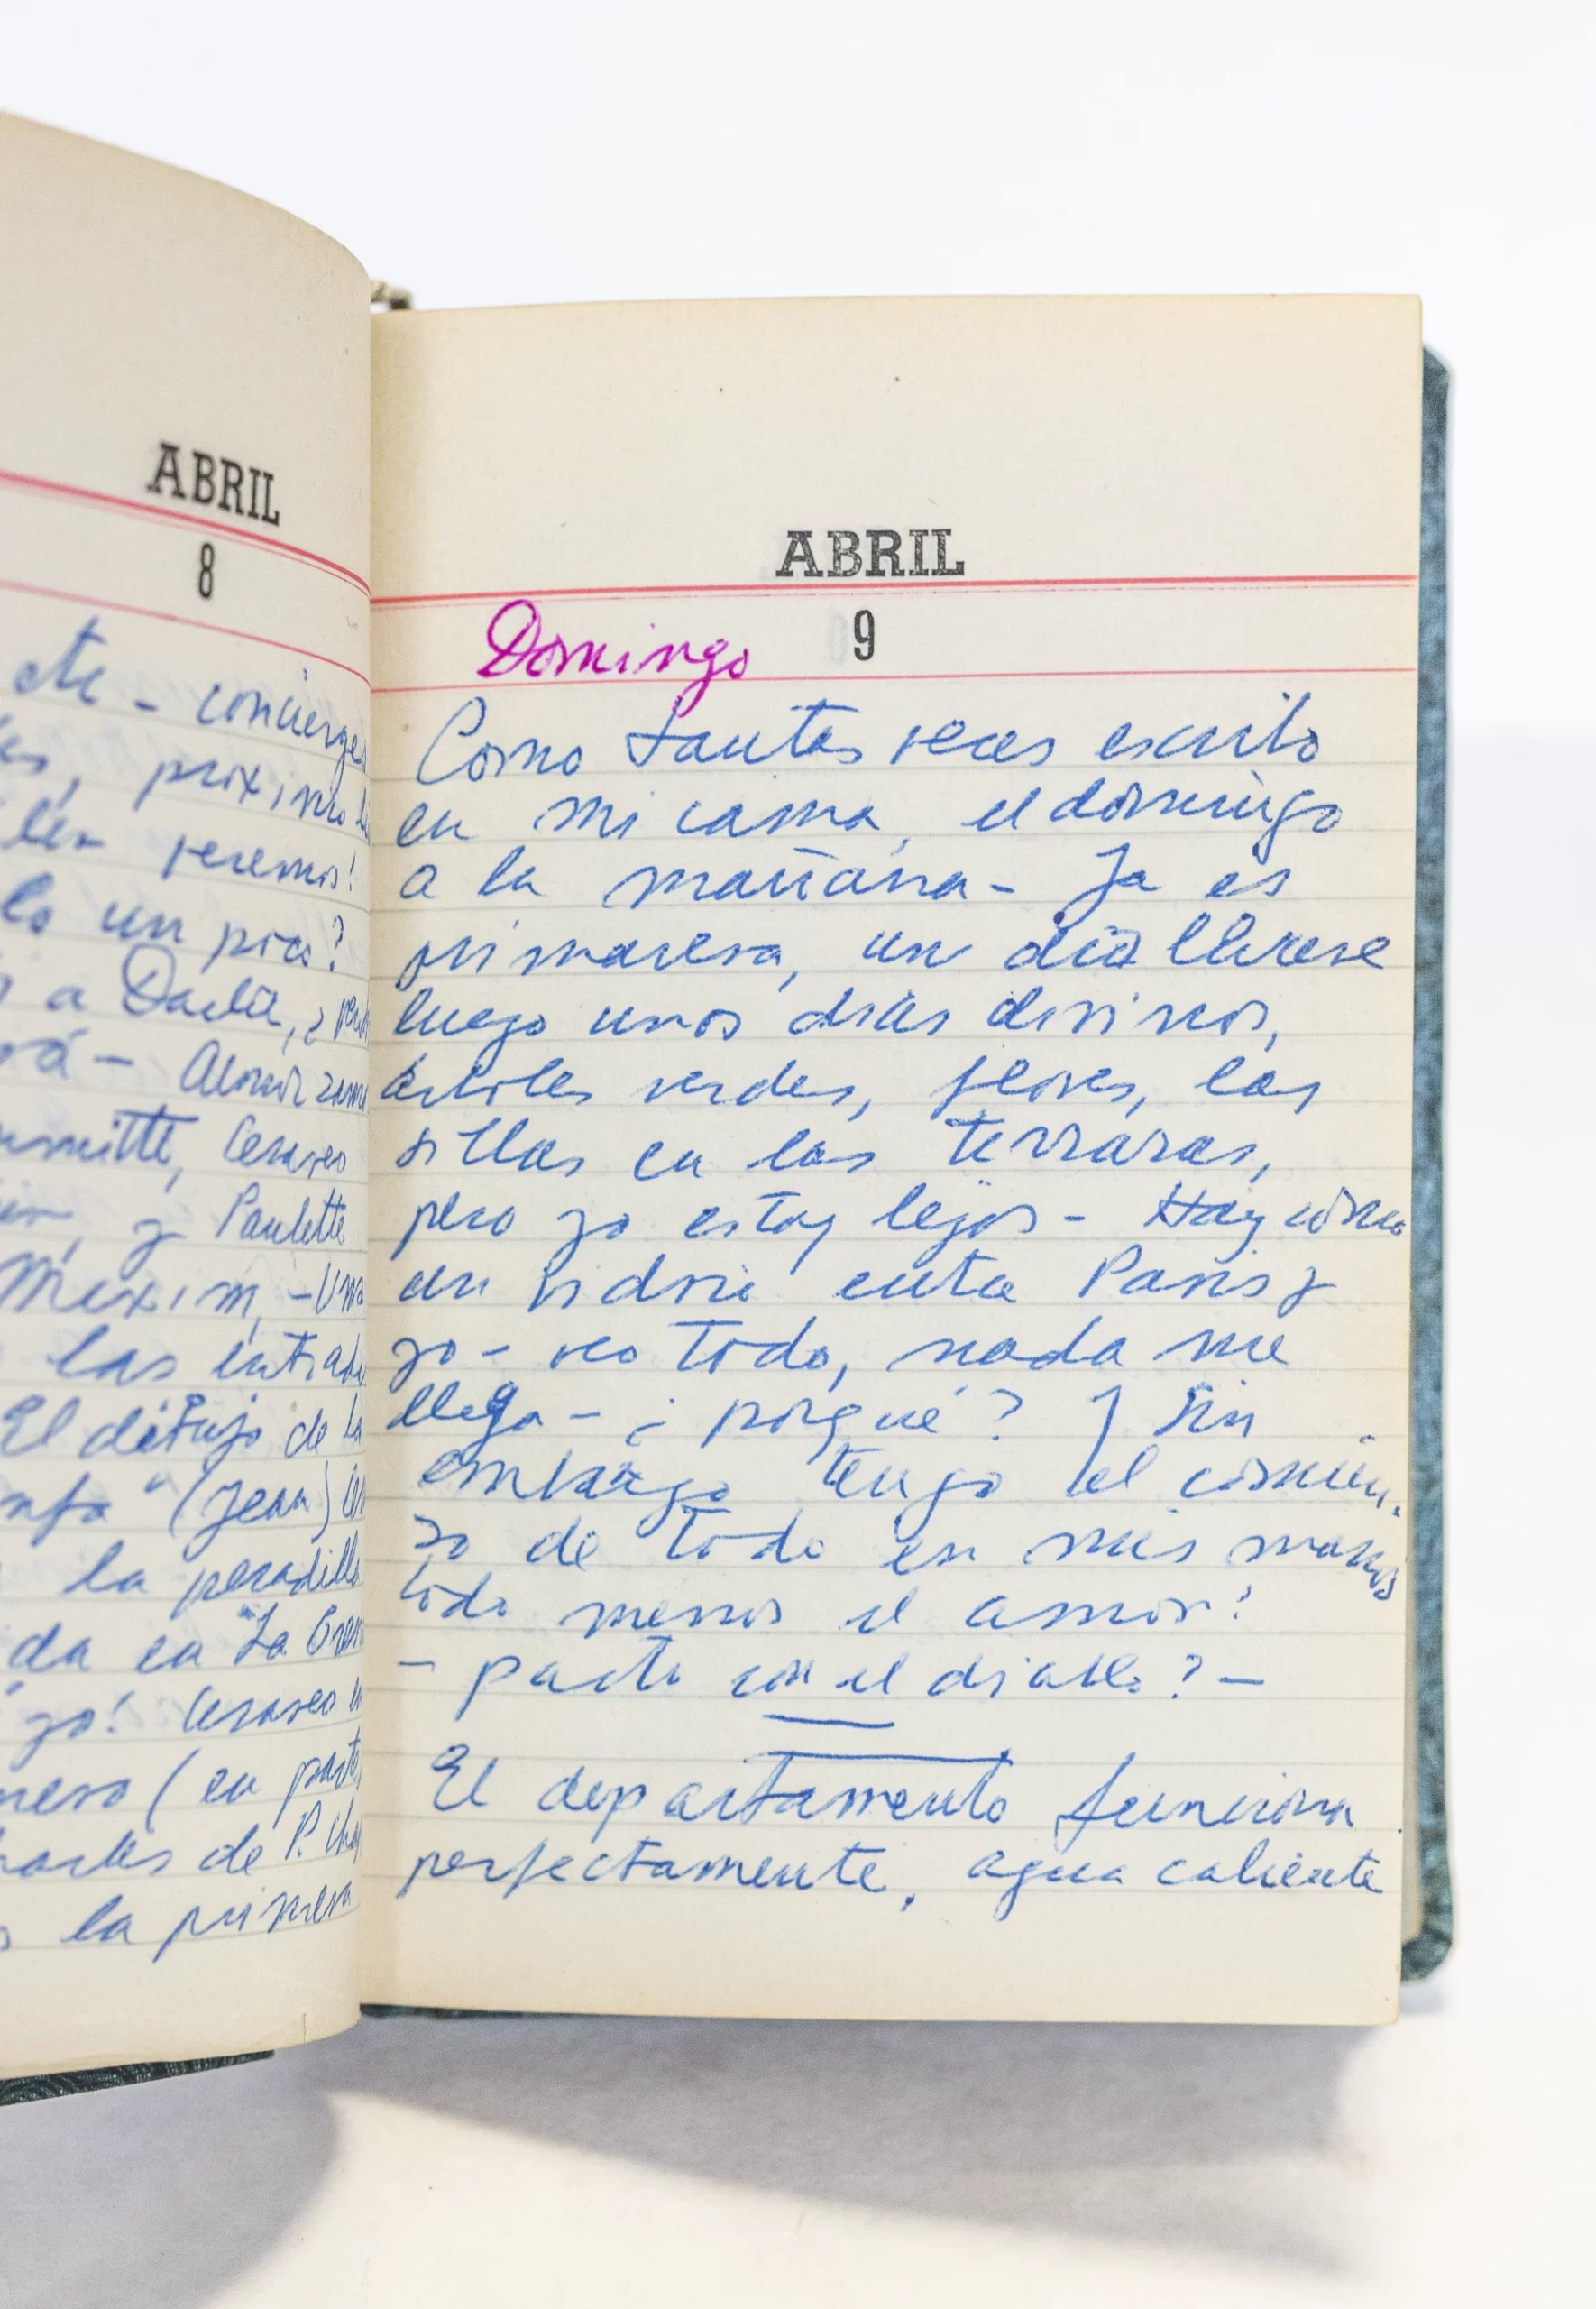 ABRIL
8
concierge
próximo
veremos!
un poco?
a
y Paulette
las
El dibujo de la
(Jean)
la pesadilla
da en "La
yo!
(en parte
de P.
la primera
ABRIL
9
Domingo
Como tantas veces escribo
en mi cama, el domingo
a la mañana - Ya es
primavera, un día llueve
luego unos días divinos,
árboles verdes, flores, las
sillas en las terrazas,
pero yo estoy lejos - Hay como
un vidrio entre Paris y
yo - veo todo, nada me
llega - ¿porqué? Y sin
embargo tengo el comien-
zo de todo en mis manos
todo menos el amor!
- pacto con el diablo? -
El departamento funciona
perfectamente, agua caliente